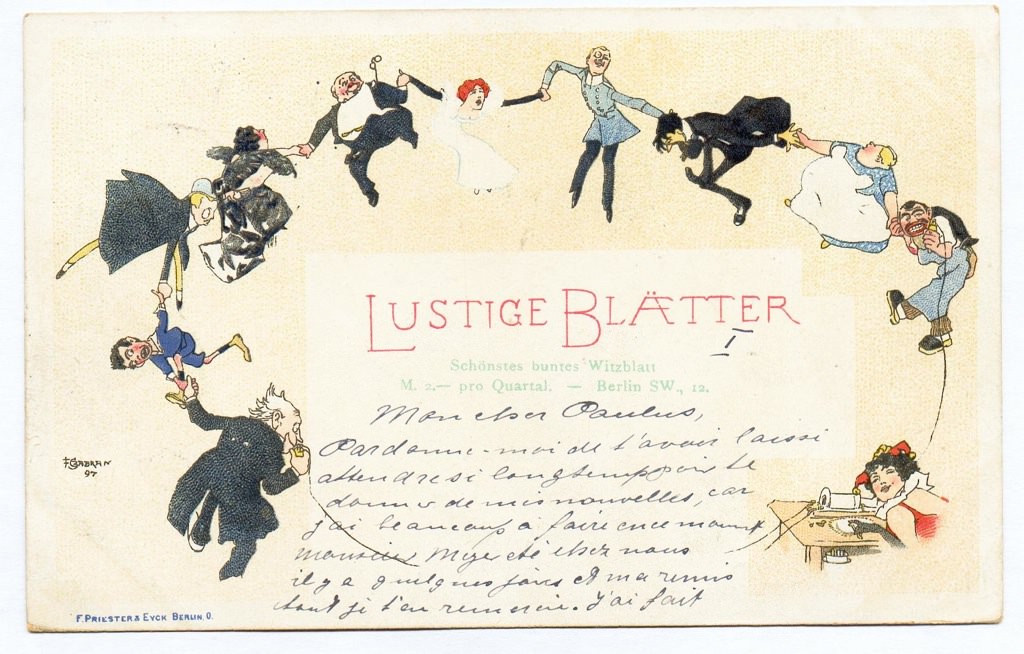 LUSTIGE BLÄTTER
I
Schönstes buntes Witzblatt
M. 2.— pro Quartal. — Berlin SW., 12.
Mon cher Paulus,
Pardonne-moi de t'avoir laissé
attendre si longtemps
donner de mes nouvelles, car
j'ai beaucoup à faire en ce moment
monsieur été chez nous
il y a quelques jours et m'a remis
tout je t'en remercie. J'ai fait
97
F. PRIESTER & EYCK BERLIN. O.